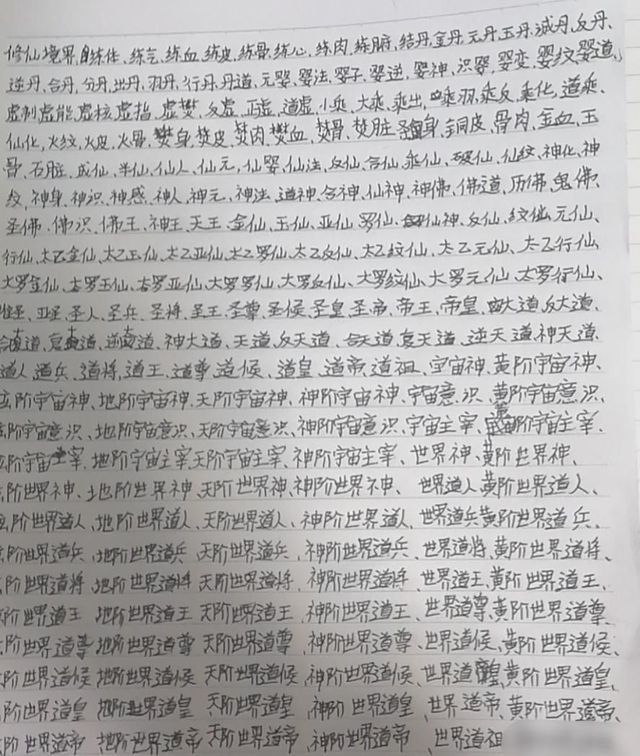 修仙境界、练体、练气、练血、练皮、练骨、练心、练肉、练脏、结丹、金丹、元丹、玉丹、减丹、反丹、
逆丹、合丹、分丹、出丹、羽丹、行丹、丹道、元婴、婴法、婴子、婴逆、婴神、识婴、婴变、婴纹、婴道、
虚制、虚能、虚核、虚指、虚樊、反虚、正虚、道虚、小乘、大乘、乘出、乘羽、乘反、乘化、道乘、
仙化、火纹、火皮、火骨、樊身、焚皮、焚肉、樊血、焚骨、焚脏、身、铜皮、骨肉、金血、玉
骨、石脏、成仙、半仙、仙人、仙元、仙婴、仙法、反仙、合仙、乘仙、破仙、仙纹、神化、神
纹、神身、神识、神感、神人、神元、神法、道神、合神、仙神、神佛、佛道、历佛、鬼佛、
圣佛、佛识、佛王、神王、天王、金仙、玉仙、亚仙、罗仙、仙神、反仙、纹仙、元仙、
行仙、太乙金仙、太乙玉仙、太乙亚仙、太乙罗仙、太乙反仙、太乙纹仙、太乙元仙、太乙行仙
大罗金仙、大罗玉仙、大罗亚仙、大罗罗仙、大罗反仙、大罗纹仙、大罗元仙、大罗行仙、
圣、亚圣、圣人、圣兵、圣将、圣王、圣尊、圣候、圣皇、圣帝、帝王、帝皇、大道、反大道、
大道、大道、逆大道、神大道、天道、反天道、合天道、复天道、逆天道、神天道、
道人、道兵、道将、道王、道尊、道候、道皇、道帝、道祖、宇宙神、黄阶宇宙神、
阶宇宙神、地阶宇宙神、天阶宇宙神、神阶宇宙神、宇宙意识、黄阶宇宙意识、
阶宇宙意识、地阶宇宙意识、天阶宇宙意识、神阶宇宙意识、宇宙主宰、黄阶宇宙主宰、
阶宇宙主宰、地阶宇宙主宰、天阶宇宙主宰、神阶宇宙主宰、世界神、黄阶世界神、
阶世界神、地阶世界神、天阶世界神、神阶世界神、世界道人、黄阶世界道人、
阶世界道人、地阶世界道人、天阶世界道人、神阶世界道人、世界道兵、黄阶世界道兵、
阶世界道兵、地阶世界道兵、天阶世界道兵、神阶世界道兵、世界道将、黄阶世界道将、
阶世界道将、地阶世界道将、天阶世界道将、神阶世界道将、世界道王、黄阶世界道王、
阶世界道王、地阶世界道王、天阶世界道王、神阶世界道王、世界道尊、黄阶世界道尊、
阶世界道尊、地阶世界道尊、天阶世界道尊、神阶世界道尊、世界道候、黄阶世界道候、
阶世界道候、地阶世界道候、天阶世界道候、神阶世界道候、世界道皇、黄阶世界道皇、
阶世界道皇、地阶世界道皇、天阶世界道皇、神阶世界道皇、世界道帝、黄阶世界道帝、
阶世界道帝、地阶世界道帝、天阶世界道帝、神阶世界道帝、世界道祖